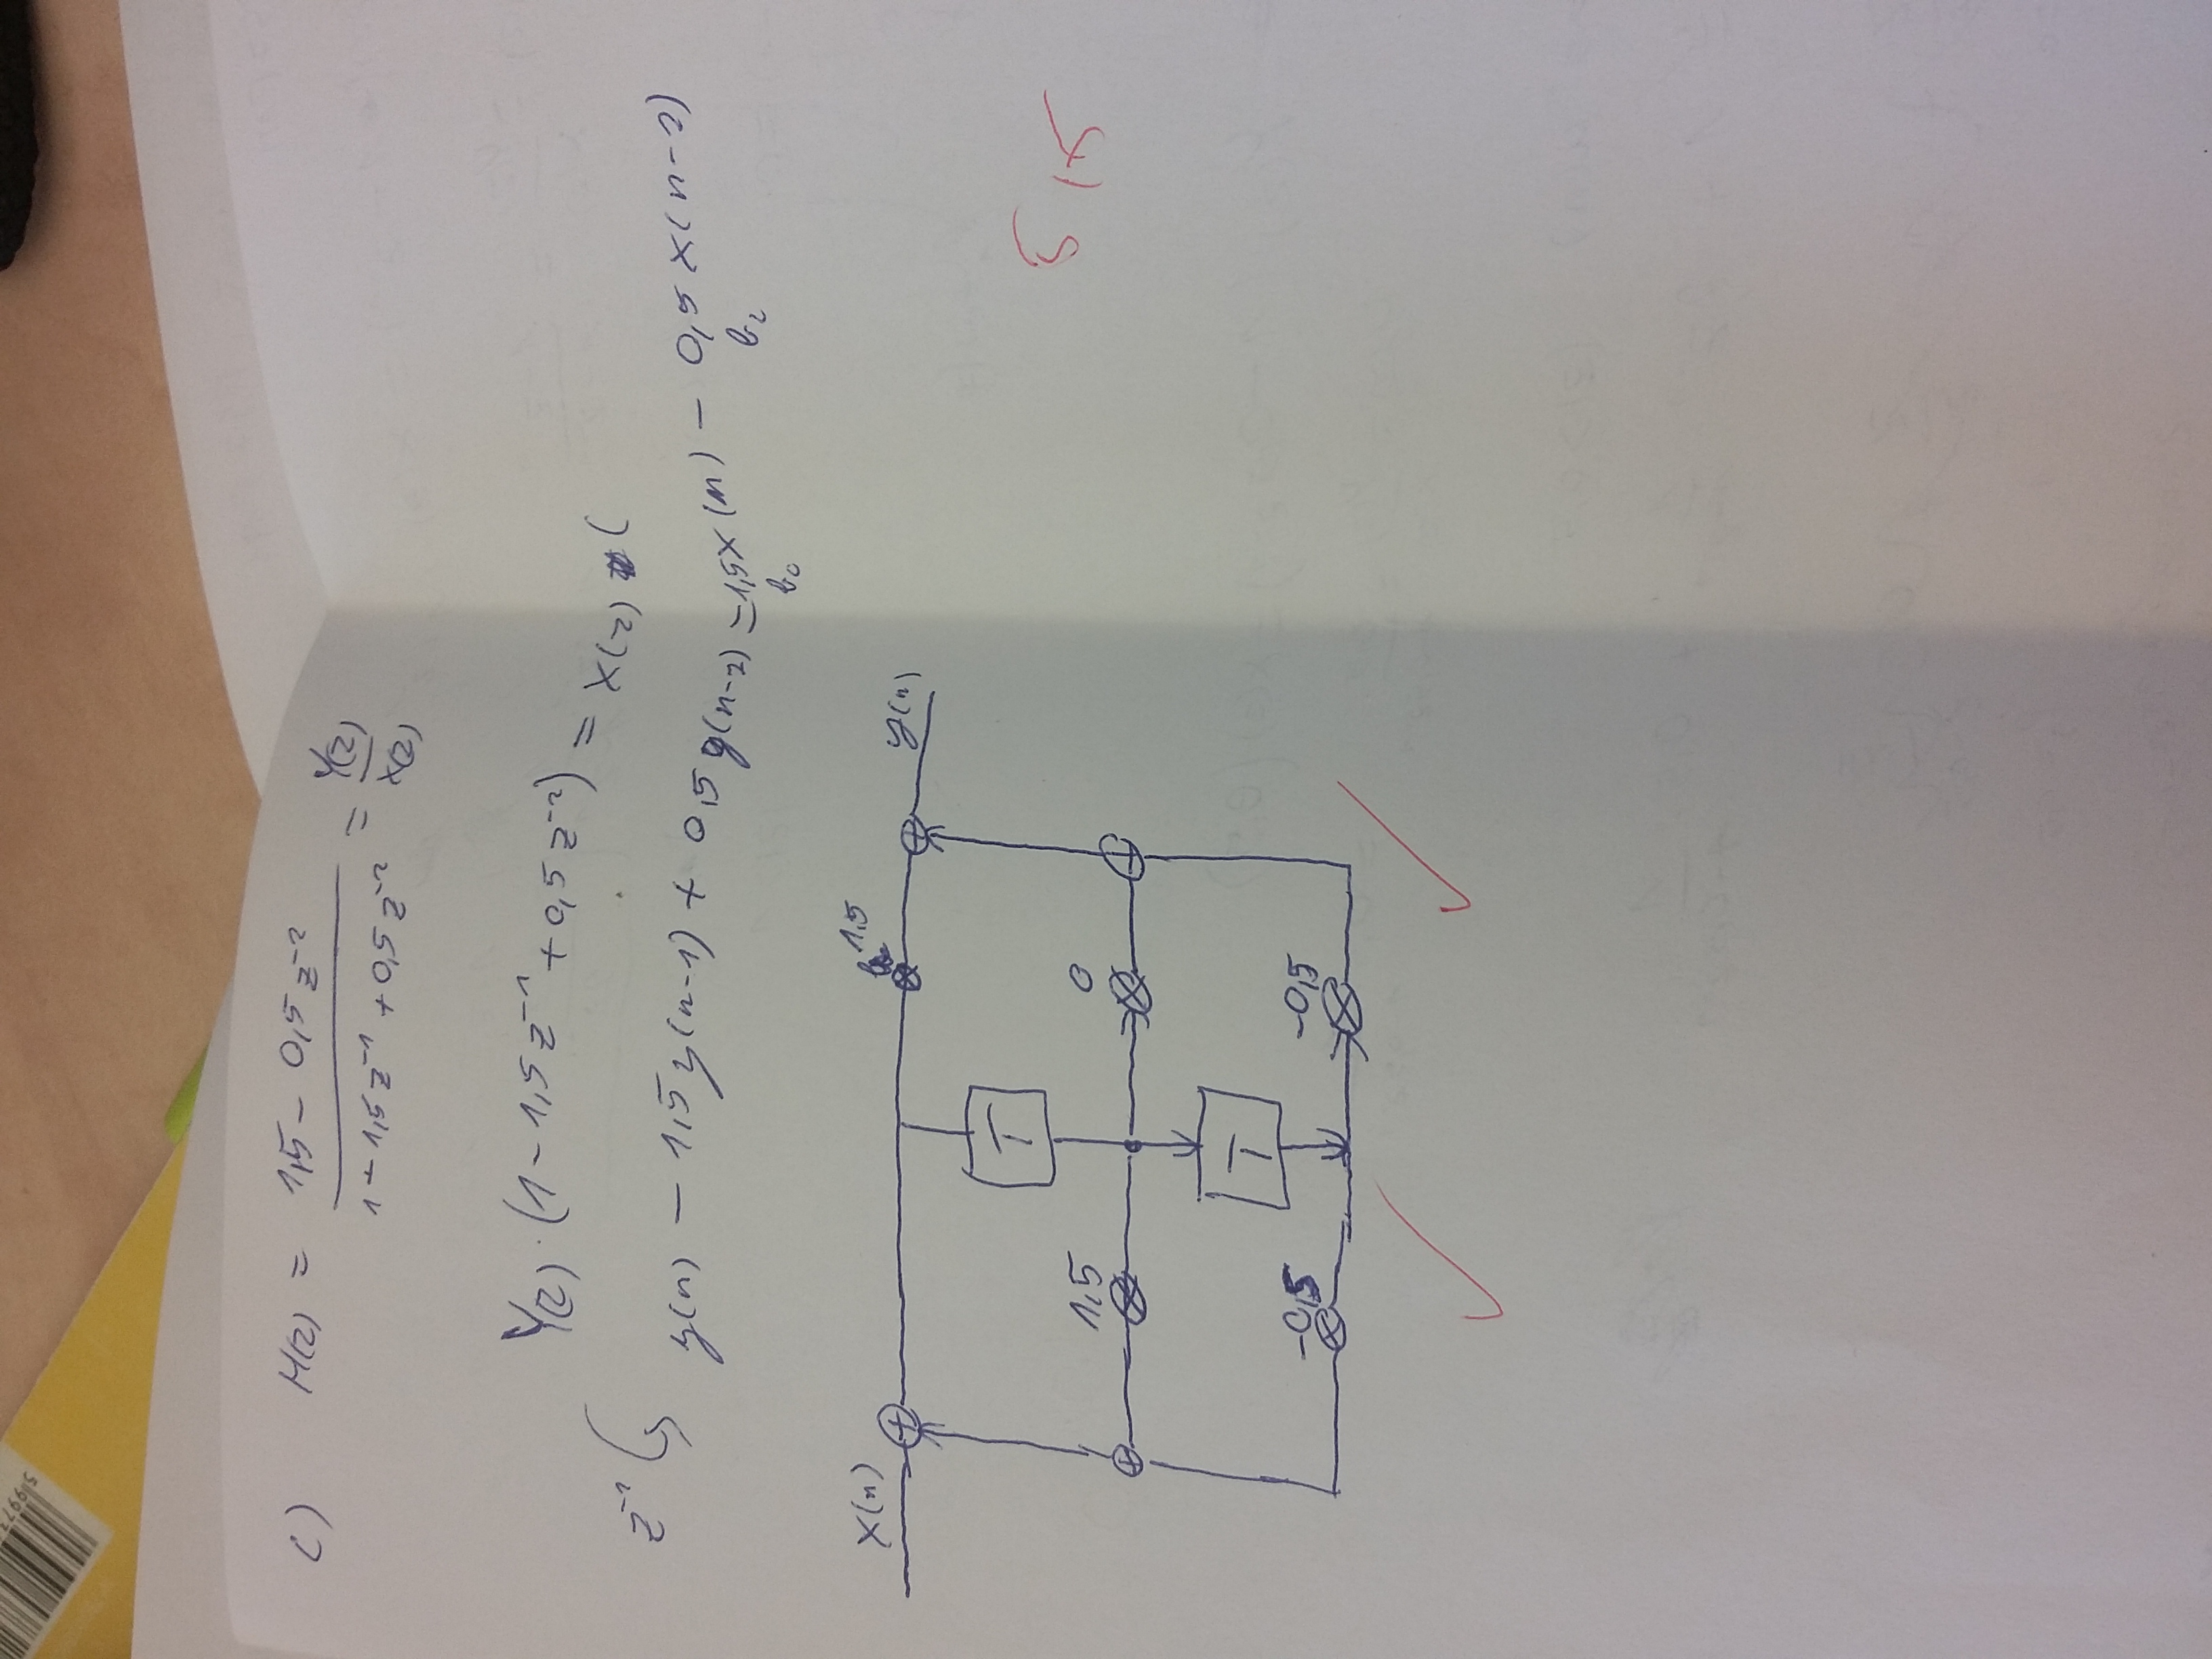 c) H(z) = 1,5 - 0,5 z⁻² / 1 - 1,5 z⁻¹ + 0,5 z⁻² = Y(z) / X(z)
Y(z) · (1 - 1,5 z⁻¹ + 0,5 z⁻²) = X(z) (
z⁻¹
y(n) - 1,5 y(n-1) + 0,5 y(n-2) = 1,5 x(n) - 0,5 x(n-2)
b₀ b₂
x(n) 1,5 y(n)
T
1,5 0
T
-0,5 -0,5